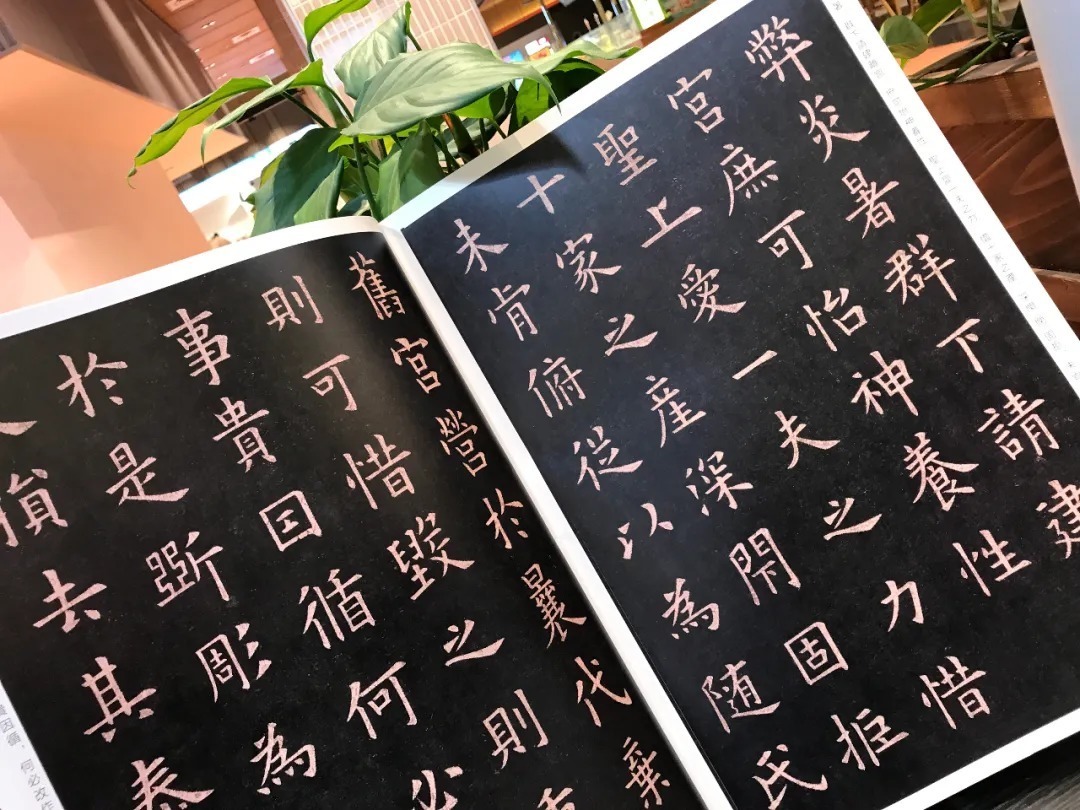 弊炎暑群下請建
宮庶可怡神養性
聖上愛一夫之力惜
十家之産深閇固拒
未肯俯從以為随氏
舊宮營於曩代棄
則可惜毀之則重
事貴因循何必
於是斲彫為
損去其泰
因循，何必改作